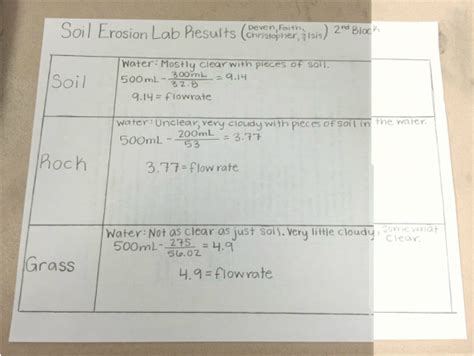 Soil Erosion Lab Results (Deven, Faith, Christopher, & Isis) 2nd Block
Soil
Water: Mostly clear with pieces of soil.
500mL - 300mL / 32.8 = 9.14
9.14 = flowrate
Rock
Water: Unclear, very cloudy with pieces of soil in the water.
500mL - 200mL / 53 = 3.77
3.77 = flow rate
Grass
Water: Not as clear as just soil. Very little cloudy, somewhat clear.
500mL - 275 / 56.02 = 4.9
4.9 = flowrate